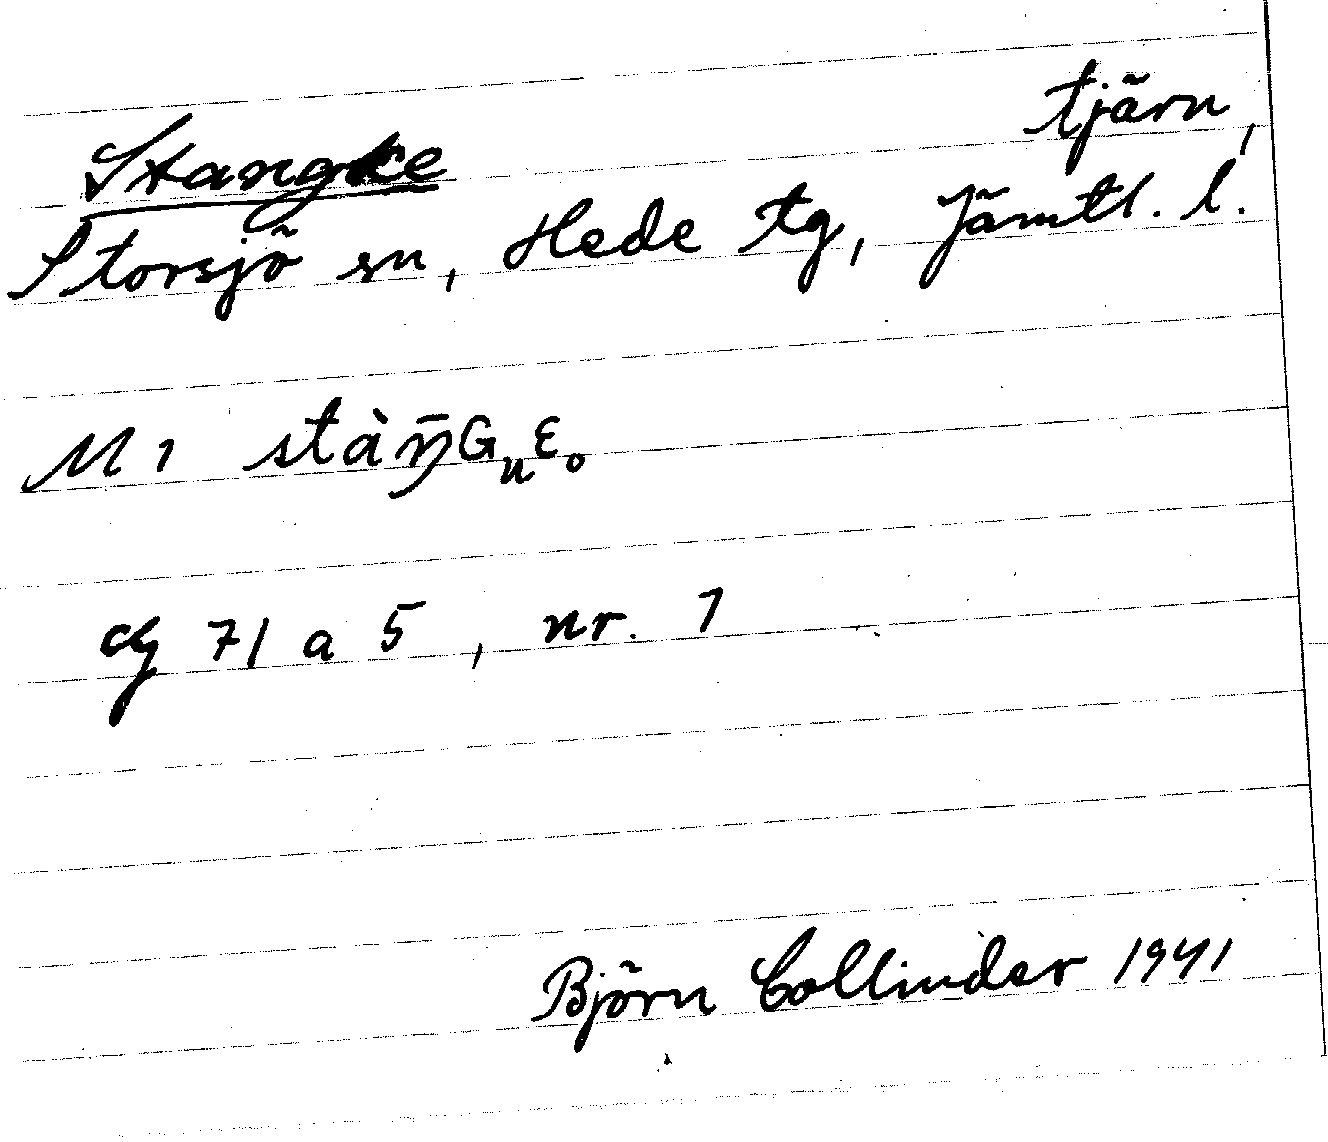 Stangke tjärn,
Storsjö sn, Hede tg, Jämtl. l.
M1 stàŋ̄Gᵤɛ。
cg 71 a 5, nr. 1
Björn Collinder 1941